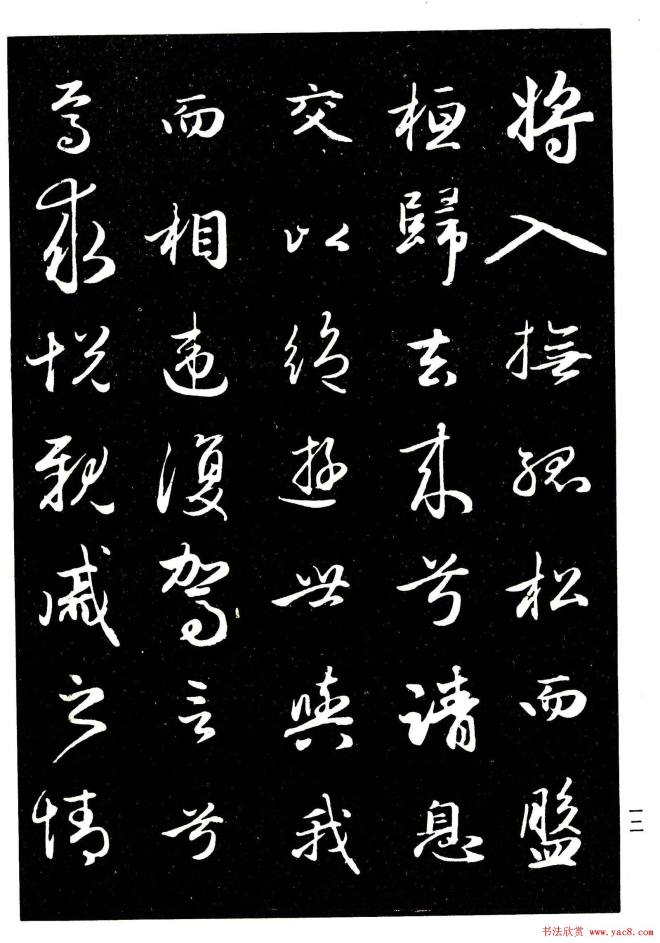 將入撫孤松而盤
桓歸去来兮請息
交以絶遊世與我
而相違復駕言兮
焉求悦親戚之情
一二
书法欣赏 www.yac8.com